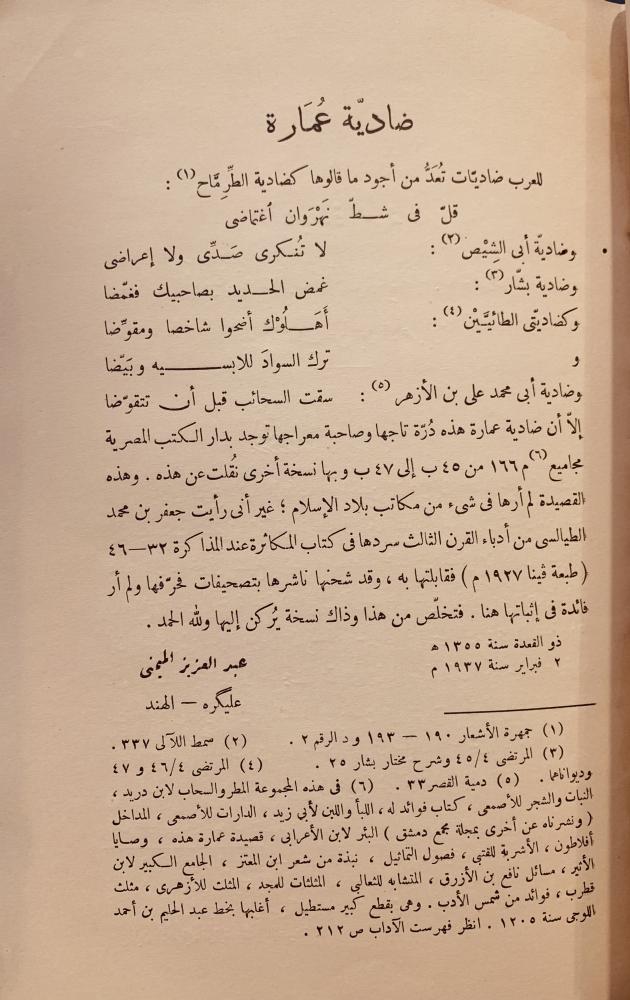 ضاديّة عُمَارة
للعرب ضاديّات تُعَدُّ من أجود ما قالوها كضادية الطِّرِمَّاح(١) :
قلّ فى شطّ نَهْرَوان اغتماضى
وضاديّة أبى الشِيْص(٢) : لا تُنكرى صَدِّى ولا إعراضى
وضادية بشّار(٣) : غمض الحديد بصاحبيك فغمّضا
وكضاديتى الطائيَّيْن(٤) : أَهَلُوْك أضحوا شاخصا ومقوِّضا
و ترك السوادَ للابسيه وبَيّضا
وضادية أبى محمد على بن الأزهر(٥) : سقت السحائب قبل أن تتقوّضا
إلاّ أن ضادية عمارة هذه دُرّة تاجها وصاحبة معراجها توجد بدار الكتب المصرية
مجاميع(٦) م ١٦٦ من ٤٥ ب إلى ٤٧ ب وبها نسخة أخرى نُقلت عن هذه . وهذه
القصيدة لم أرها فى شىء من مكاتب بلاد الإسلام ؛ غير أنى رأيت جعفر بن محمد
الطيالسى من أدباء القرن الثالث سردها فى كتاب المكاثرة عند المذاكرة ٣٢—٤٦
( طبعة ڤينا ١٩٢٧ م ) فقابلتها به ، وقد شحنها ناشرها بتصحيفات فحرّفها ولم أر
فائدة فى إثباتها هنا . فتخلّص من هذا وذاك نسخة يُركن إليها ولله الحمد .
ذو القعدة سنة ١٣٥٥ ه
٢ فبراير سنة ١٩٣٧ م
عبد العزيز الميمنى
عليگره — الهند
(١) جمهرة الأشعار ١٩٠ — ١٩٣ و د الرقم ٢ . (٢) سمط اللآلى ٣٣٧ .
(٣) المرتضى ٤٥/٤ وشرح مختار بشار ٢٥ . (٤) المرتضى ٤٦/٤ و ٤٧
وديواناهما . (٥) دمية القصر ٣٣ . (٦) فى هذه المجموعة المطر والسحاب لابن دريد ،
النبات والشجر للأصمعى ، كتاب فوائد له ، اللبأ واللبن لأبى زيد ، الدارات للأصمعى ، المداخل
( ونشرناه عن أخرى بمجلة مجمع دمشق ) البئر لابن الأعرابى ، قصيدة عمارة هذه ، وصايا
أفلاطون ، الأشربة للقتبى ، فصول التماثيل ، نبذة من شعر ابن المعتز ، الجامع الكبير لابن
الأثير ، مسائل نافع بن الأزرق ، المتشابه للثعالبى ، المثلثات للمجد ، المثلث للأزهرى ، مثلث
قطرب ، فوائد من شمس الأدب . وهى بقطع كبير مستطيل ، أغلبها بخط عبد الحليم بن أحمد
اللوجى سنة ١٢٠٥ . انظر فهرست الآداب ص ٢١٢ .